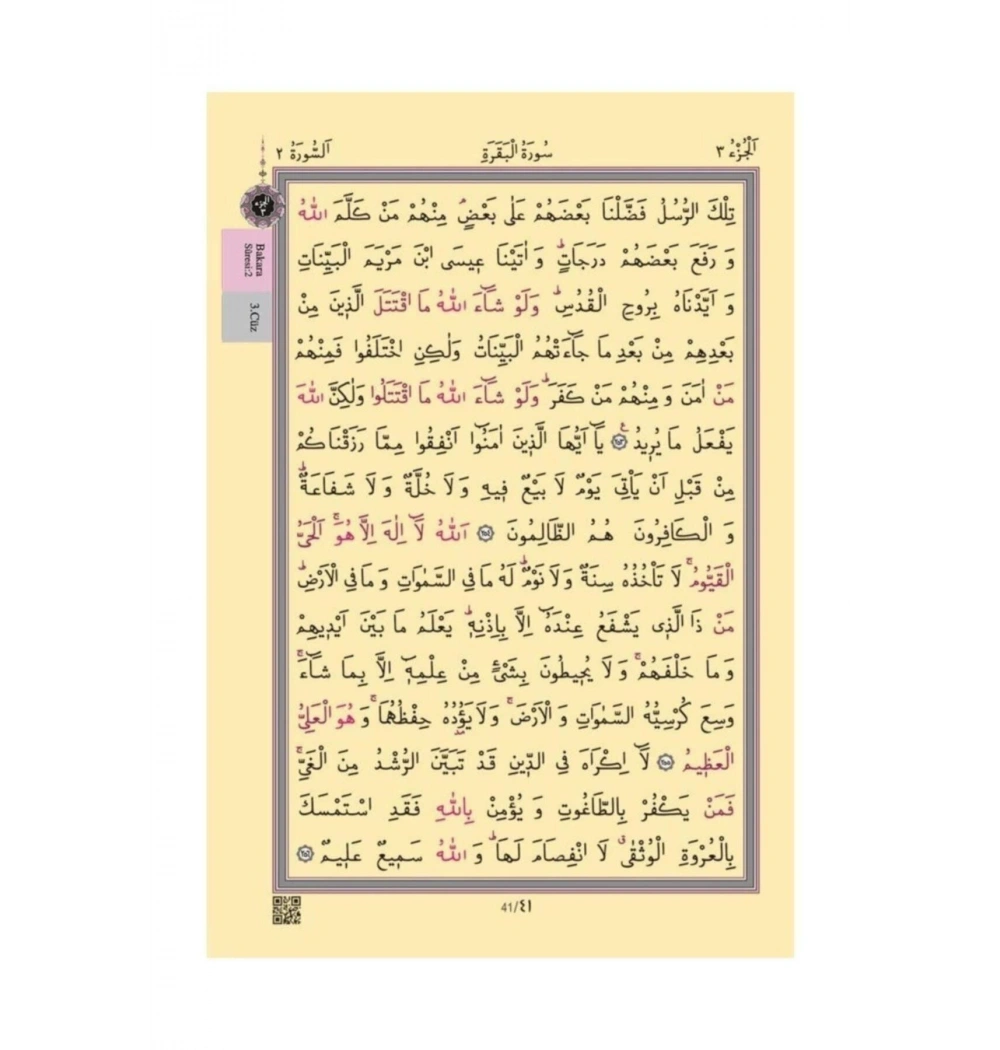 اَلْجُزْءُ ٣
سُورَةُ الْبَقَرَةِ
اَلسُّورَةُ ٢
تِلْكَ الرُّسُلُ فَضَّلْنَا بَعْضَهُمْ عَلٰى بَعْضٍۢ مِنْهُمْ مَنْ كَلَّمَ اللّٰهُ
وَ رَفَعَ بَعْضَهُمْ دَرَجَاتٍۜ وَ اٰتَيْنَا عٖيسَى ابْنَ مَرْيَمَ الْبَيِّنَاتِ
وَ اَيَّدْنَاهُ بِرُوحِ الْقُدُسِۜ وَلَوْ شَٓاءَ اللّٰهُ مَا اقْتَتَلَ الَّذٖينَ مِنْ
بَعْدِهِمْ مِنْ بَعْدِ مَا جَٓاءَتْهُمُ الْبَيِّنَاتُ وَلٰكِنِ اخْتَلَفُوا فَمِنْهُمْ
مَنْ اٰمَنَ وَ مِنْهُمْ مَنْ كَفَرَۜ وَلَوْ شَٓاءَ اللّٰهُ مَا اقْتَتَلُوا وَلٰكِنَّ اللّٰهَ
يَفْعَلُ مَا يُرٖيدُࣖ ﴿٢٥٣﴾ يَٓا اَيُّهَا الَّذٖينَ اٰمَنُٓوا اَنْفِقُوا مِمَّا رَزَقْنَاكُمْ
مِنْ قَبْلِ اَنْ يَأْتِيَ يَوْمٌ لَا بَيْعٌ فٖيهِ وَ لَا خُلَّةٌ وَ لَا شَفَاعَةٌۜ
وَ الْكَافِرُونَ هُمُ الظَّالِمُونَ ﴿٢٥٤﴾ اَللّٰهُ لَٓا اِلٰهَ اِلَّا هُوَۚ اَلْحَيُّ
الْقَيُّومُۚ لَا تَأْخُذُهُ سِنَةٌ وَ لَا نَوْمٌۜ لَهُ مَا فِي السَّمٰوَاتِ وَ مَا فِي الْاَرْضِۜ
مَنْ ذَا الَّذٖى يَشْفَعُ عِنْدَهُٓ اِلَّا بِاِذْنِهٖۜ يَعْلَمُ مَا بَيْنَ اَيْدٖيهِمْ
وَ مَا خَلْفَهُمْۚ وَ لَا يُحٖيطُونَ بِشَيْءٍ مِنْ عِلْمِهٖٓ اِلَّا بِمَا شَٓاءَۚ
وَسِعَ كُرْسِيُّهُ السَّمٰوَاتِ وَ الْاَرْضَۚ وَ لَا يَؤُدُهُ حِفْظُهُمَاۚ وَ هُوَ الْعَلِيُّ
الْعَظٖيمُ ﴿٢٥٥﴾ لَٓا اِكْرَاهَ فِى الدّٖينِ قَدْ تَبَيَّنَ الرُّشْدُ مِنَ الْغَيِّۚ
فَمَنْ يَكْفُرْ بِالطَّاغُوتِ وَ يُؤْمِنْ بِاللّٰهِ فَقَدِ اسْتَمْسَكَ
بِالْعُرْوَةِ الْوُثْقٰىۗ لَا انْفِصَامَ لَهَاۜ وَ اللّٰهُ سَمٖيعٌ عَلٖيمٌ ﴿٢٥٦﴾
Bakara
Sûresi:2
3.Cüz
41/٤١